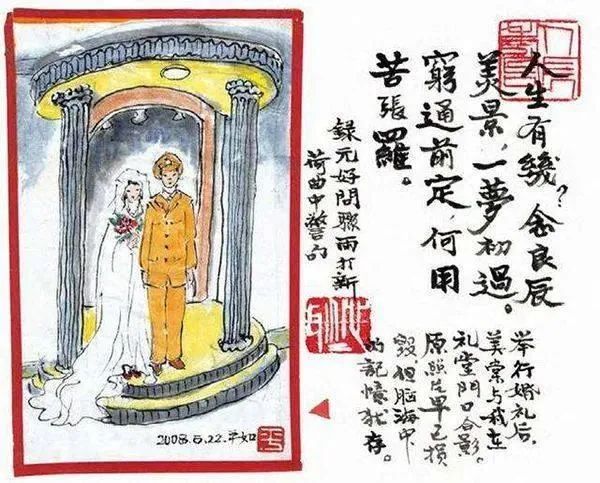 人生有幾？念良辰
美景，一夢初過。
窮通前定，何用
苦張羅。
錄元好問驟雨打新
荷曲中警句
举行婚礼后，
美棠与我在
礼堂门口合影。
原照片早已损
毁，但脑海中
的記憶犹存。
2008.5.22.平如
平